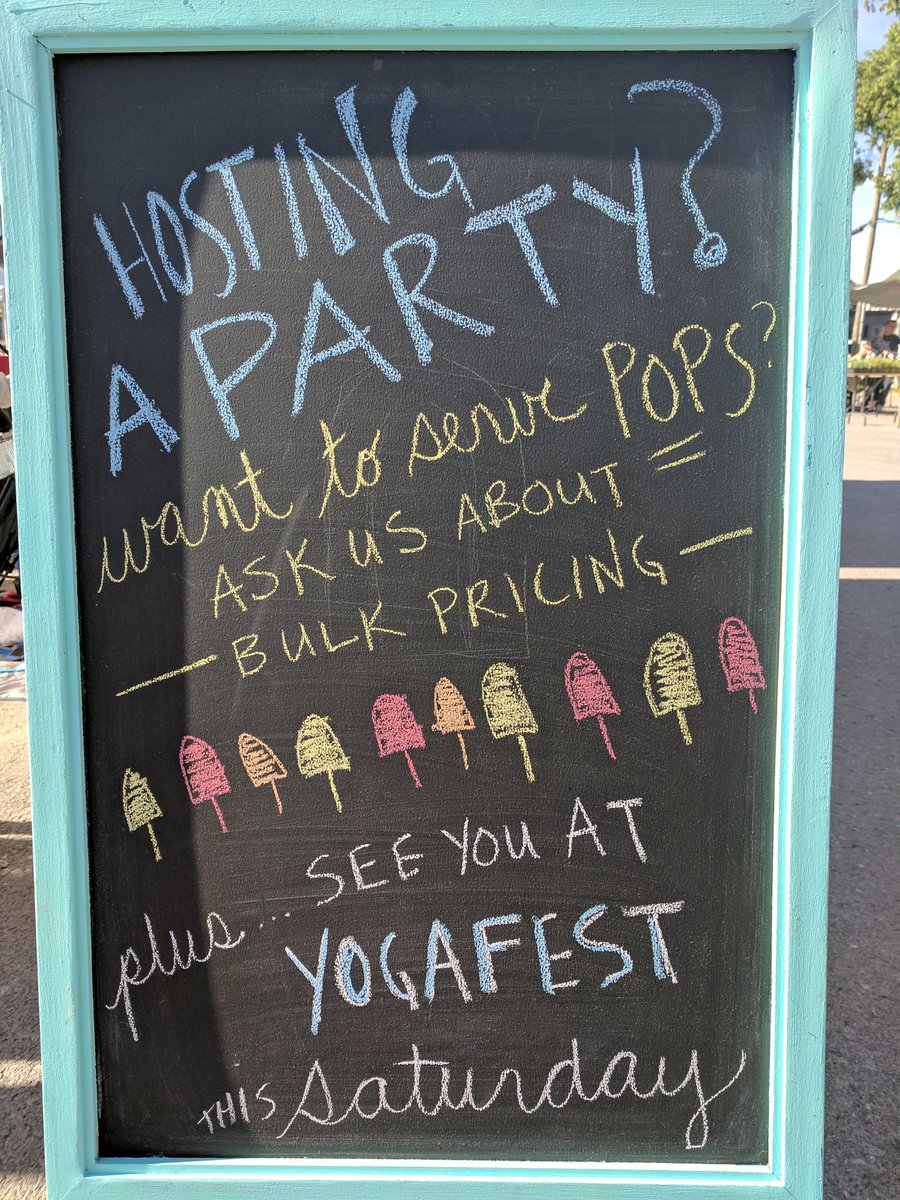 HOSTING
A PARTY?
want to serve POPS?
ASK US ABOUT
— BULK PRICING —
plus... SEE YOU AT
YOGAFEST
THIS Saturday